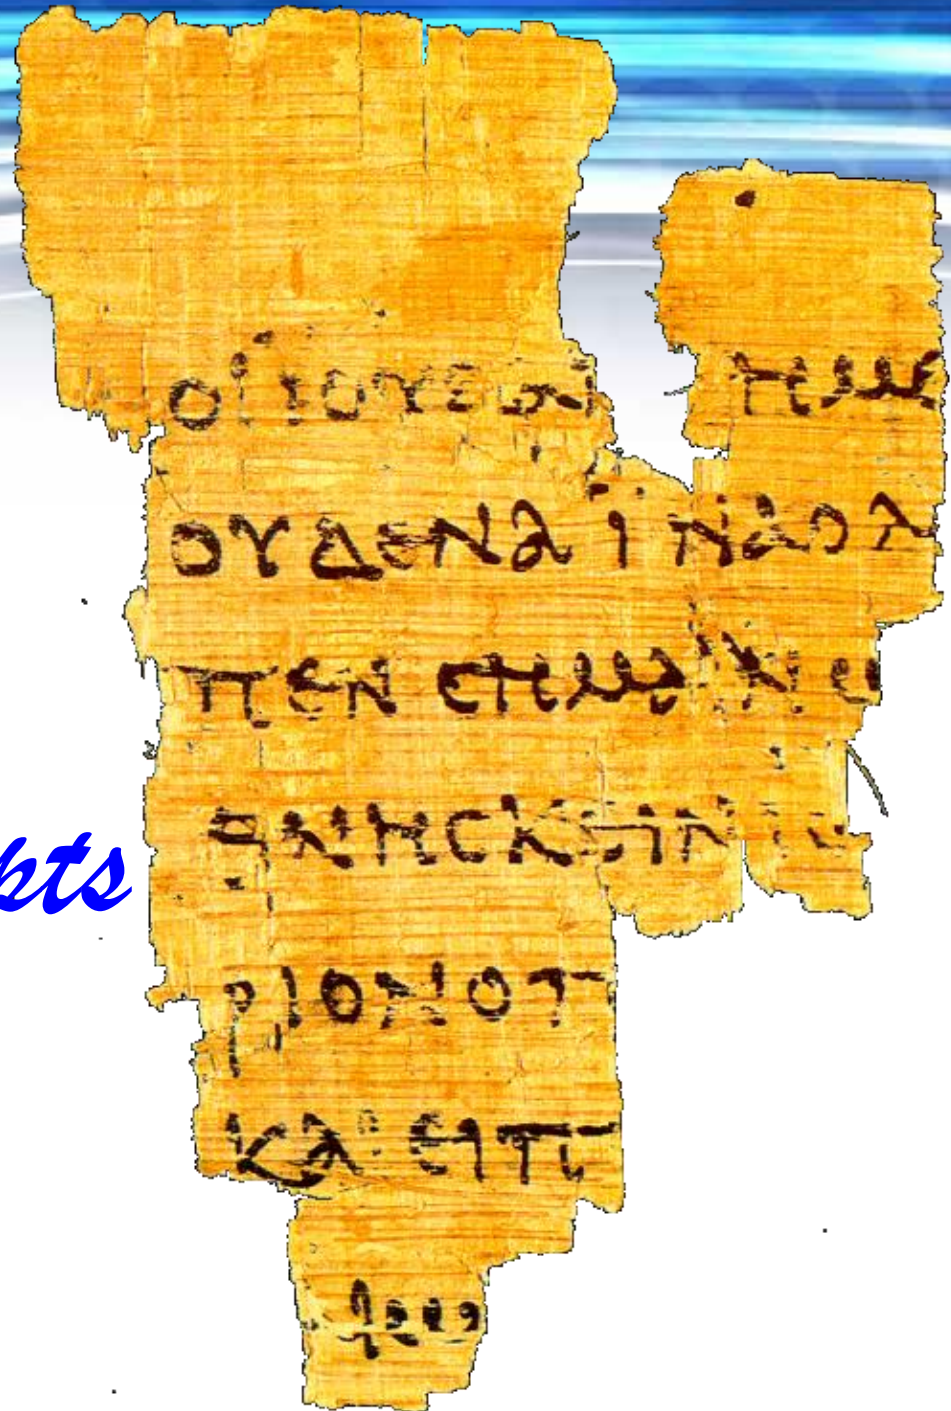 ΟΙ ΙΟΥΔΑΙ ΗΜΕ
ΟΥΔΕΝΑ ΙΝΑ Ο Λ
ΠΕΝ CΗΜΑΙΝΩ
ΘΝΗCΚΕΙΝ
pts
ΡΙΟΝ Ο Π
ΚΑΙ ΕΙΠ